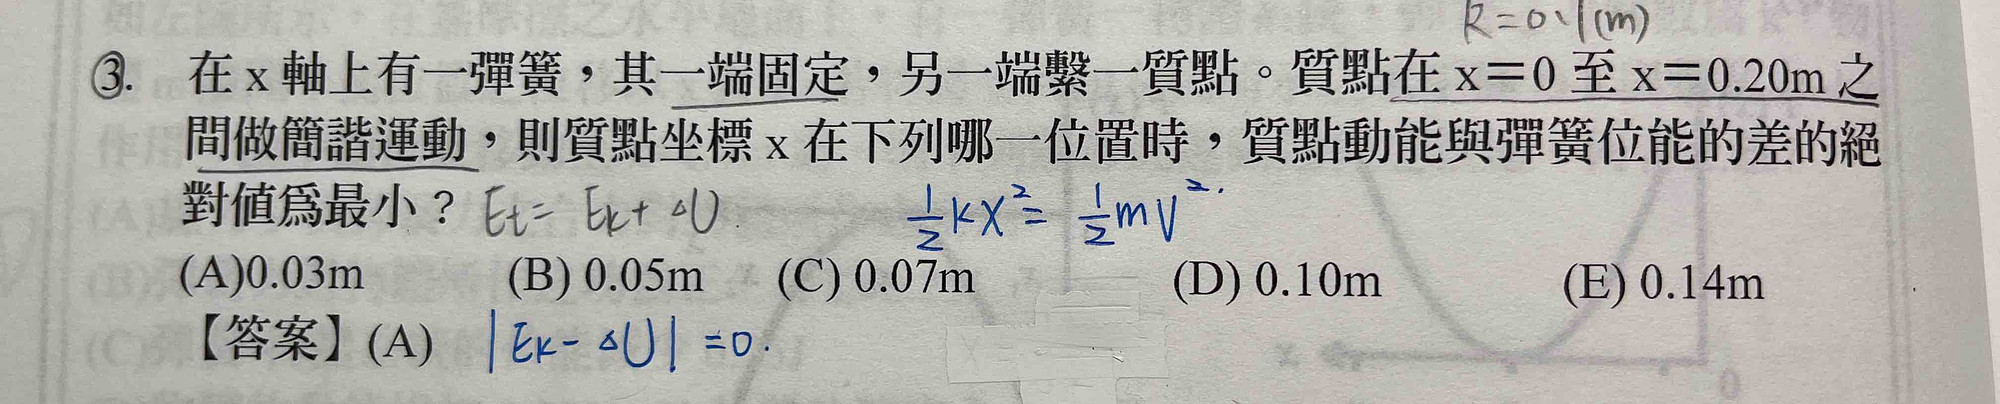 R=0.1(m)
③. 在 x 軸上有一彈簧，其一端固定，另一端繫一質點。質點在 x＝0 至 x＝0.20m 之
間做簡諧運動，則質點坐標 x 在下列哪一位置時，質點動能與彈簧位能的差的絕
對值為最小？ Et= Ek+ △U. ½kx²= ½mv².
(A)0.03m (B) 0.05m (C) 0.07m (D) 0.10m (E) 0.14m
【答案】(A) |Ek- △U| =0.